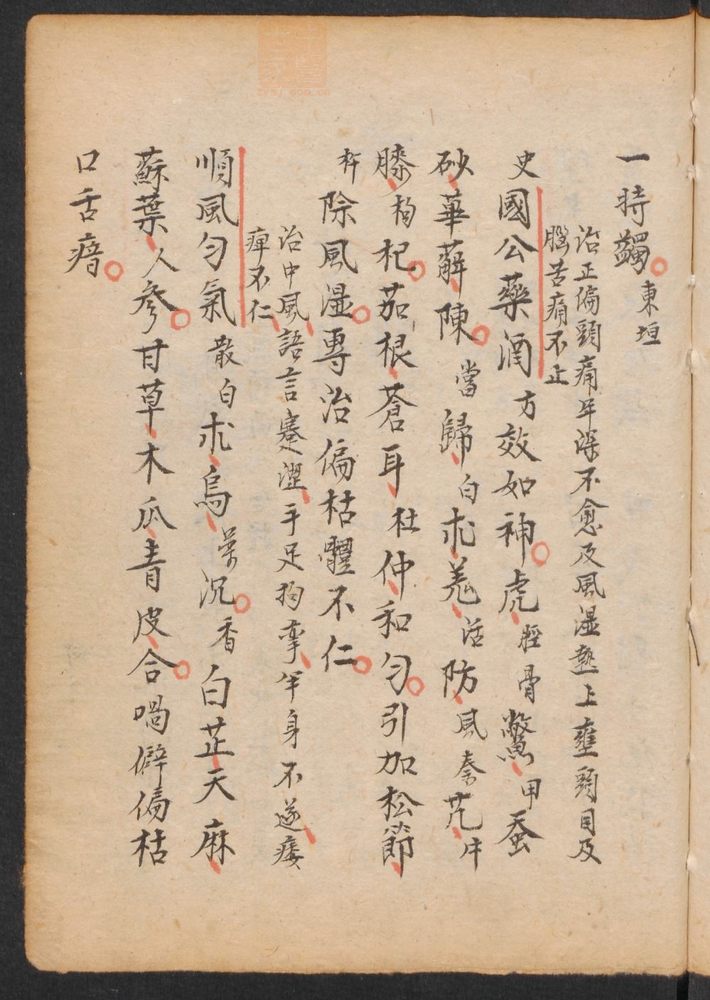 一時蠲東垣
治正偏頭痛年深不愈及風湿熱上壅頭目及
腦苦痛不止
史國公藥酒方效如神虎脛骨鱉甲蚕
砂萆薢陳當歸白朮羌活防風秦艽牛
膝枸杞茄根蒼耳杜仲和勻引加松節
杵除風湿專治偏枯體不仁
治中風語言蹇澀手足拘攣半身不遂痿
痺不仁
順風勻氣散白朮烏藥沉香白芷天麻
蘇葉人參甘草木瓜青皮合喎僻偏枯
口舌瘖